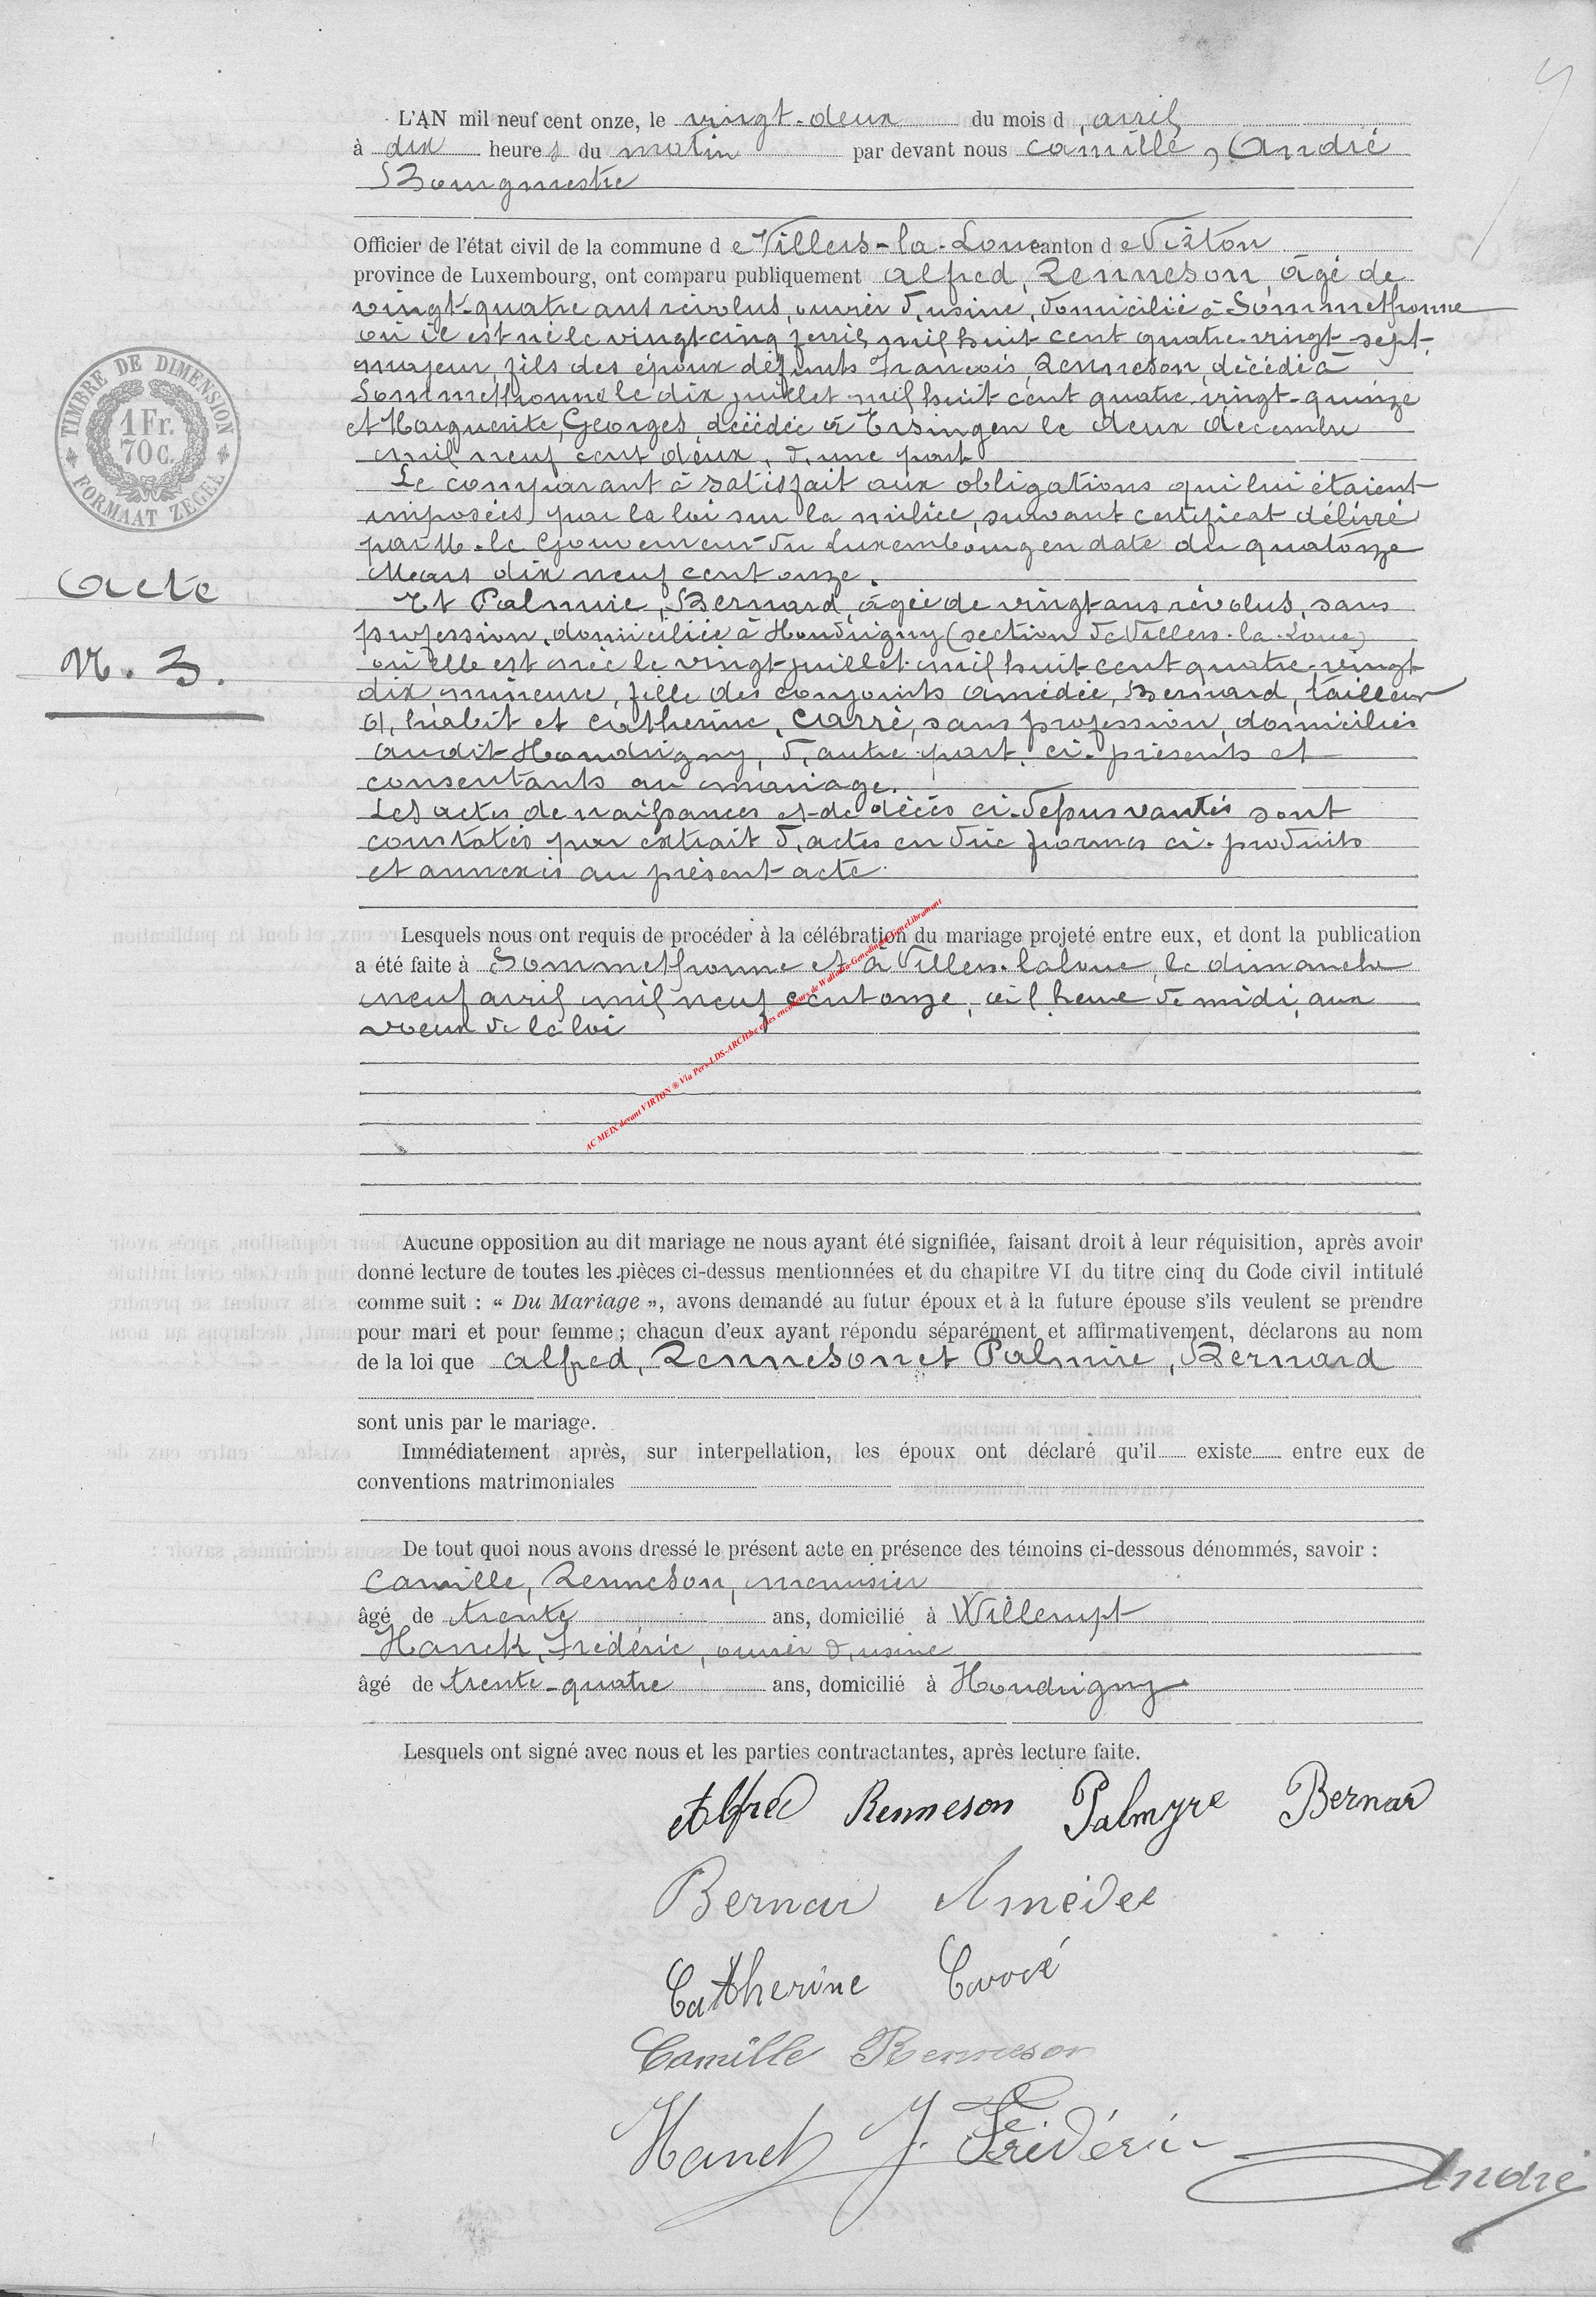 L'AN mil neuf cent onze, le vingt-deux du mois d'avril
à dix heures du matin par devant nous Camille, André
Bourgmestre
Officier de l'état civil de la commune de Villers-la-Loue canton de Virton
province de Luxembourg, ont comparu publiquement Alfred, Renneson, âgé de
vingt-quatre ans révolus, ouvrier d'usine, domicilié à Sommethonne
où il est né le vingt-cinq mil huit cent quatre-vingt-sept,
majeur, fils des époux défunts François, Renneson, décédé à
Sommethonne le dix juillet mil huit cent quatre-vingt-quinze
et Marguerite, Georges, décédée à Ersingen le deux décembre
mil neuf cent deux, d'une part
Le comparant à satisfait aux obligations qui lui étaient
imposées par la loi sur la milice, suivant certificat délivré
par M. le Gouverneur du Luxembourg en date du quatorze
Mars dix neuf cent onze.
TIMBRE DE DIMENSION
1 Fr.
70 c.
FORMAAT ZEGEL
Acte
N. 3.
Et Palmire, Bernard, âgée de vingt ans révolus, sans
profession, domiciliée à Houdrigny (section de Villers-la-Loue)
où elle est née le vingt juillet mil huit cent quatre-vingt
dix, mineure, fille des conjoints Amédée, Bernard, tailleur
d'habit et Catherine, Carré, sans profession, domiciliés
audit Houdrigny, d'autre part, ci-présents et
consentants au mariage.
Les actes de naissances et de décès ci-dessus vantés sont
constatés par extrait d'actes en due formes ci-produits
et annexés au présent acte.
Lesquels nous ont requis de procéder à la célébration du mariage projeté entre eux, et dont la publication
a été faite à Sommethonne et à Villers-laloue, le dimanche
neuf avril mil neuf cent onze, à l'heure de midi, aux
voeux de la loi
AC MEIX devant VIRTON ® Via Pers-LDS-ARCH.be et les encodeurs de Wallonia-Genedinant-GeneLibramont
Aucune opposition au dit mariage ne nous ayant été signifiée, faisant droit à leur réquisition, après avoir
donné lecture de toutes les pièces ci-dessus mentionnées et du chapitre VI du titre cinq du Code civil intitulé
comme suit : « Du Mariage », avons demandé au futur époux et à la future épouse s'ils veulent se prendre
pour mari et pour femme ; chacun d'eux ayant répondu séparément et affirmativement, déclarons au nom
de la loi que Alfred, Renneson et Palmire, Bernard
sont unis par le mariage.
Immédiatement après, sur interpellation, les époux ont déclaré qu'il existe entre eux de
conventions matrimoniales
De tout quoi nous avons dressé le présent acte en présence des témoins ci-dessous dénommés, savoir :
Camille, Renneson, menuisier
âgé de trente ans, domicilié à Willerupt
Hanck, Frédéric, ouvrier d'usine
âgé de trente-quatre ans, domicilié à Houdrigny
Lesquels ont signé avec nous et les parties contractantes, après lecture faite.
Alfred Renneson Palmyre Bernard
Bernard Amédée
Catherine Carré
Camille Renneson
Hanck J. Frédéric
André